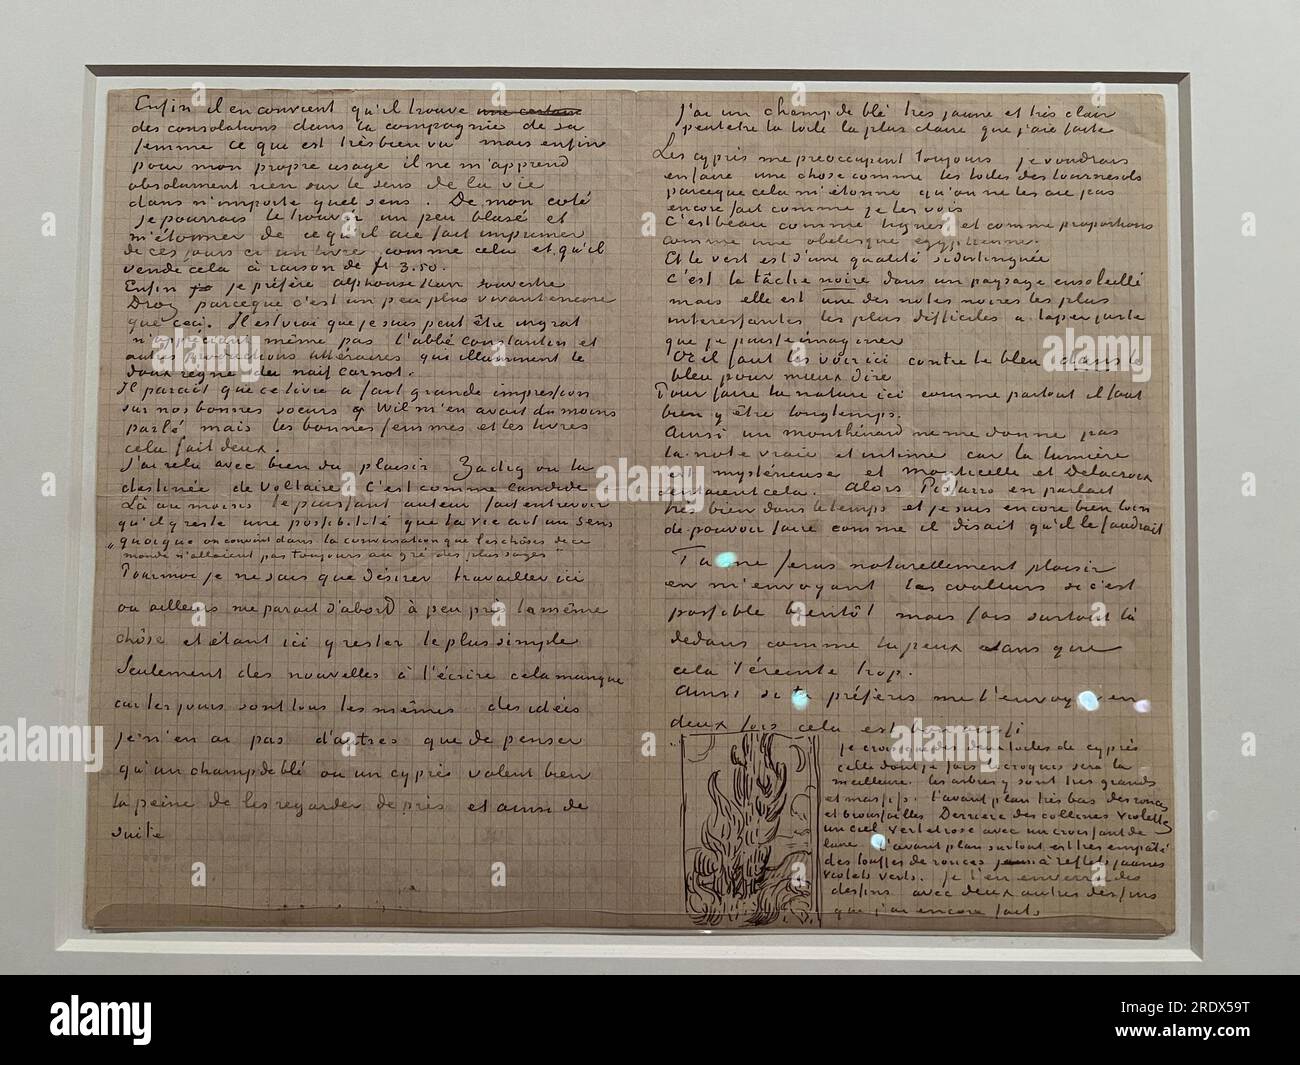 Enfin il en convient qu'il trouve une certaine
des consolations dans la compagnie de sa
femme ce qui est très bien vu mais enfin
pour mon propre usage il ne m'apprend
absolument rien sur le sens de la vie
dans n'importe quel sens. De mon coté
je pourrais le trouver un peu blasé et
m'étonner de ce qu'il aie fait imprimer
de ces jours ci un livre comme cela et qu'il
vende cela à raison de fr 3.50.
Enfin je préfère alphonse Karr souvestre
Droz parceque c'est un peu plus vivant encore
que ceci. Il est vrai que je suis peut être ingrat
n'appréciant même pas l'abbé Constantin et
autres productions littéraires qui illuminent le
doux règne du naif Carnot.
Il parait que ce livre a fait grande impression
sur nos bonnes soeurs Wil m'en avait du moins
parlé mais les bonnes femmes et les livres
cela fait deux.
J'ai relu avec bien du plaisir Zadig ou la
destinée de Voltaire C'est comme Candide
Là au moins le puissant auteur fait entrevoir
qu'il y reste une possibilité que la vie ait un sens
"quoiqu'on convint dans la conversation que les choses de ce
monde n'allaient pas toujours au gré des plus sages"
Pour moi je ne sais que désirer travailler ici
ou ailleurs me parait d'abord à peu près la même
chôse et étant ici y rester le plus simple
Seulement des nouvelles à t'écrire cela manque
car les jours sont tous les mêmes des idées
je n'en ai pas d'autres que de penser
qu'un champ de blé ou un cyprès valent bien
la peine de les regarder de près et ainsi de
suite
J'ai un champ de blé très jaune et très clair
peutetre la toile la plus claire que j'aie faite
Les cyprès me préoccupent toujours je voudrais
en faire une chose comme les toiles des tournesols
parceque cela m'étonne qu'on ne les aie pas
encore fait comme je les vois
C'est beau comme lignes et comme proportions
comme une obelisque égyptienne.
Et le vert est d'une qualité si distinguée
C'est la tâche noire dans un paysage ensoleillé
mais elle est une des notes noires les plus
interessantes les plus difficiles a taper juste
que je puisse imaginer
Or il faut les voir ici contre le bleu dans le
bleu pour mieux dire
Pour faire la nature ici comme partout il faut
bien y être longtemps.
Ainsi un monthénard ne me donne pas
la note vraie et intime car la lumière
est mystérieuse et Monticelli et Delacroix
sentaient cela. Alors Pissarro en parlait
très bien dans le temps et je suis encore bien loin
de pouvoir faire comme il disait qu'il le faudrait
Tu me feras naturellement plaisir
en m'envoyant les couleurs si c'est
possible bientôt mais fais surtout là
dedans comme tu peux sans que
cela t'éreinte trop.
Ainsi si tu préfères me l'envoyer en
deux fois cela est bon aussi
je crois que des deux toiles de cyprès
celle dont je fais le croquis sera la
meilleure. les arbres y sont très grands
et massifs. l'avant plan très bas des ronces
et broussailles Derrière des collines violettes
un ciel vert et rose avec un croissant de
lune l'avant plan surtout est très empaté
des touffes de ronces à reflets jaunes
violets verts. je t'en enverrai des
dessins avec deux autres dessins
que j'ai encore faits
alamy
Image ID: 2RDX59T
www.alamy.com